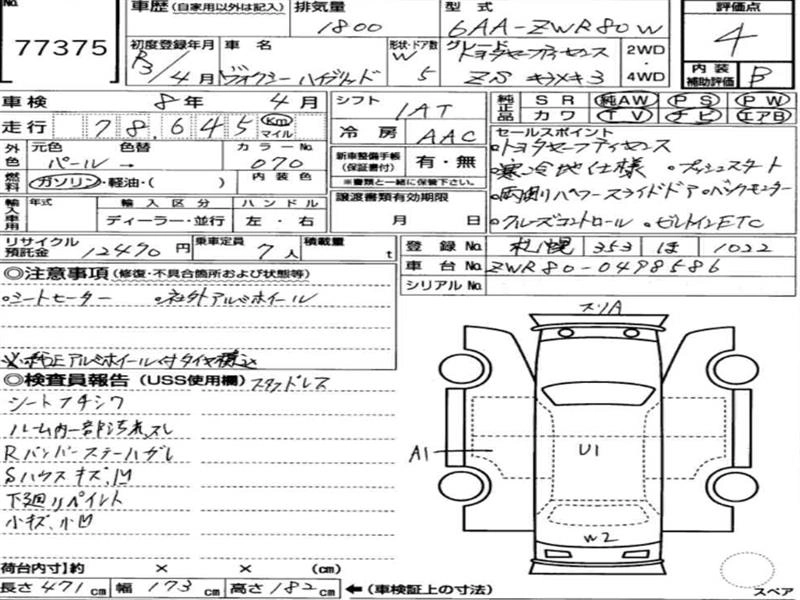 No.
77375
車歴 (自家用以外は記入)
排気量
1800
型式
6AA-ZWR80W
評価点
4
内装補助評価 B
初度登録年月
R3/4月
車名
ヴォクシー ハイブリッド
形状・ドア数
W 5
グレード
トヨタセーフティセンス
ZS キラメキ3
2WD
・
4WD
車検 8年 4月
走行 78,645 Km マイル
シフト 1AT
冷房 AAC
純正品 SR 純AW PS PW
カワ TV ナビ エアB
外色 元色 パール → 色替 カラーNo. 070
燃料 ガソリン・軽油・( ) 内装色
新車整備手帳(保証書付) 有・無
※書類と一緒に保管下さい。
輸入車用 年式 輸入区分 ディーラー・並行 ハンドル 左・右
譲渡書類有効期限
月 日
セールスポイント
○トヨタセーフティセンス
○寒冷地仕様 ○プッシュスタート
○両側パワースライドドア ○バックモニター
○クルーズコントロール ○ビルトインETC
リサイクル預託金 12490円 乗車定員 7人 積載量 t
登録No. 札幌 353 ほ 1022
車台No. ZWR80-0498586
シリアルNo.
◎注意事項 (修復・不具合箇所および状態等)
○シートヒーター ○社外アルミホイール
※純正アルミホイール付タイヤ積込
◎検査員報告 (USS使用欄) スタッドレス
シートフチシワ
ルーム内一部汚れ、スレ
Rバンパーステーハガレ
Sハウスキズ、凹
下廻リペイント
小キズ、小凹
スリA
A1
U1
W2
スペア
荷台内寸 約 × × (cm)
長さ 471cm 幅 173cm 高さ 182cm ←(車検証上の寸法)